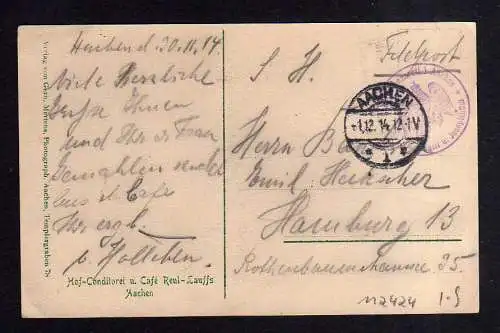 Aachen d. 30.11.14
Viele herzliche
Grüße Ihnen
und Ihrer Frau
Gemahlin sendet
aus d. Café
Ihr erg.
v. Holleben.
Hof-Conditorei u. Café Reul-Lauffs
Aachen
Verlag von Gebr. Mertens, Photograph, Aachen, Templergraben 78
Feldpost
S. H.
AACHEN
*1.12.14.12-1V
1
Herrn
Emil
Hamburg 13
Rothenbaumchaussee 25.
112424
1-9